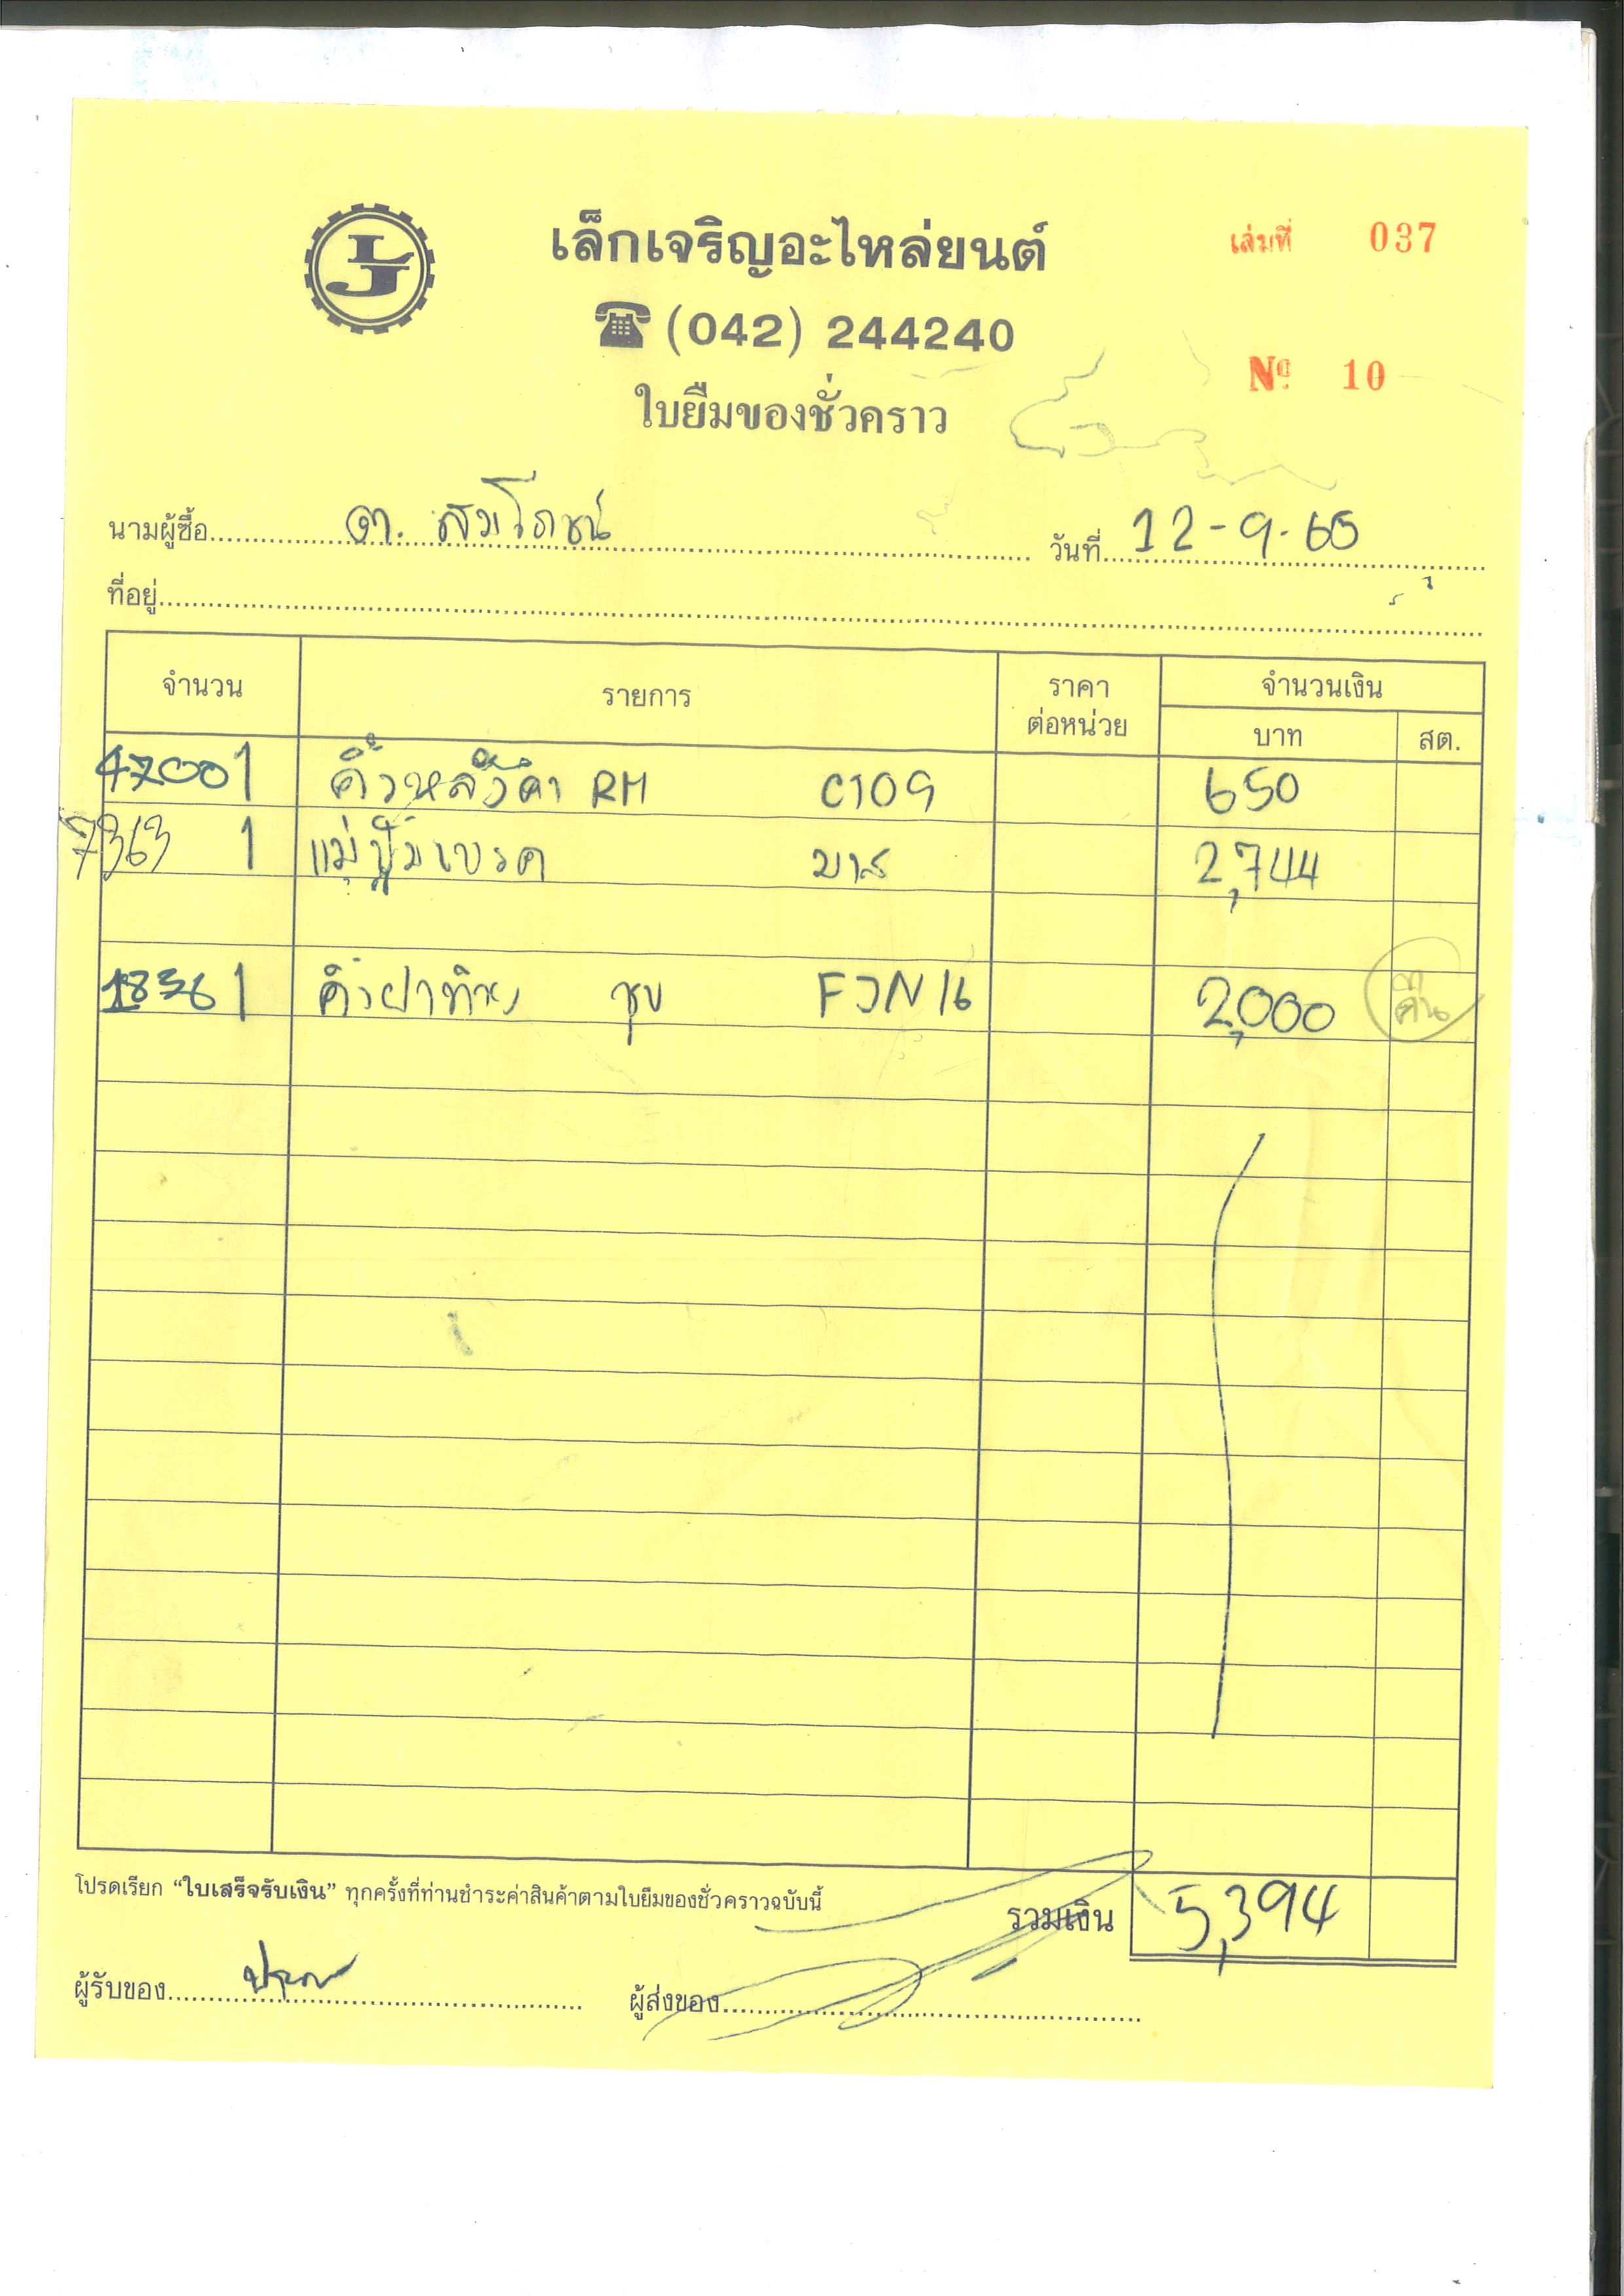 LJ
เล็กเจริญอะไหล่ยนต์
เล่มที่ 037
(042) 244240
Nº 10
ใบยืมของชั่วคราว
นามผู้ซื้อ วันที่ 12-9-65
ที่อยู่
จำนวน รายการ ราคาต่อหน่วย จำนวนเงิน
บาท สต.
4700 1 คิ้วหลังคา RM C109 650
7363 1 แม่ปั๊มเบรค 2,744
1836 1 คิ้วฝาท้าย ชุบ FJN16 2,000 คืน
โปรดเรียก “ใบเสร็จรับเงิน” ทุกครั้งที่ท่านชำระค่าสินค้าตามใบยืมของชั่วคราวฉบับนี้
รวมเงิน 5,394
ผู้รับของ ผู้ส่งของ